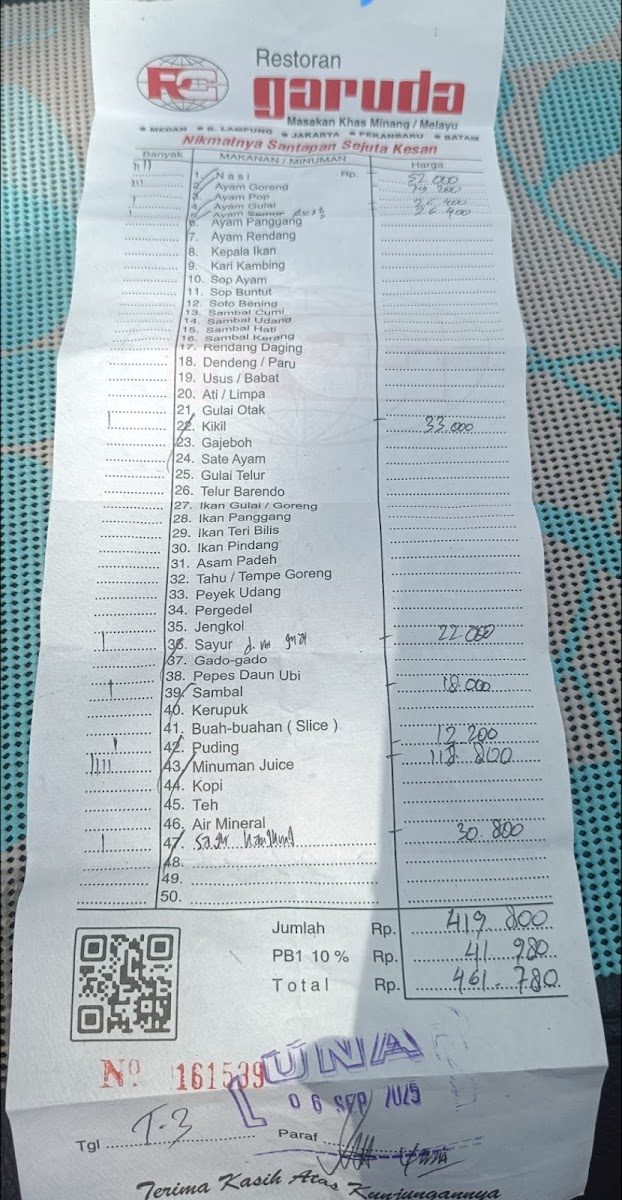 RG
Restoran
garuda
Masakan Khas Minang / Melayu
* MEDAN * B. LAMPUNG * JAKARTA * PEKANBARU * BATAM
Nikmatnya Santapan Sejuta Kesan
Banyak MAKANAN / MINUMAN Harga
1. Nasi Rp. 52.000
2. Ayam Goreng 79.200
3. Ayam Pop 26.400
4. Ayam Gulai 26.400
5. Ayam Semur
6. Ayam Panggang
7. Ayam Rendang
8. Kepala Ikan
9. Kari Kambing
10. Sop Ayam
11. Sop Buntut
12. Soto Bening
13. Sambal Cumi
14. Sambal Udang
15. Sambal Hati
16. Sambal Kerang
17. Rendang Daging
18. Dendeng / Paru
19. Usus / Babat
20. Ati / Limpa
21. Gulai Otak
22. Kikil 33.000
23. Gajeboh
24. Sate Ayam
25. Gulai Telur
26. Telur Barendo
27. Ikan Gulai / Goreng
28. Ikan Panggang
29. Ikan Teri Bilis
30. Ikan Pindang
31. Asam Padeh
32. Tahu / Tempe Goreng
33. Peyek Udang
34. Pergedel
35. Jengkol
36. Sayur 22.000
37. Gado-gado
38. Pepes Daun Ubi
39. Sambal 18.000
40. Kerupuk
41. Buah-buahan ( Slice )
42. Puding 13.200
43. Minuman Juice 118.800
44. Kopi
45. Teh
46. Air Mineral
47. 30.800
48.
49.
50.
Jumlah Rp. 419.800
PB1 10 % Rp. 41.980
Total Rp. 461.780
No 161539
LUNAS
06 SEP 2025
Tgl T-3 Paraf
Terima Kasih Atas Kunjungannya